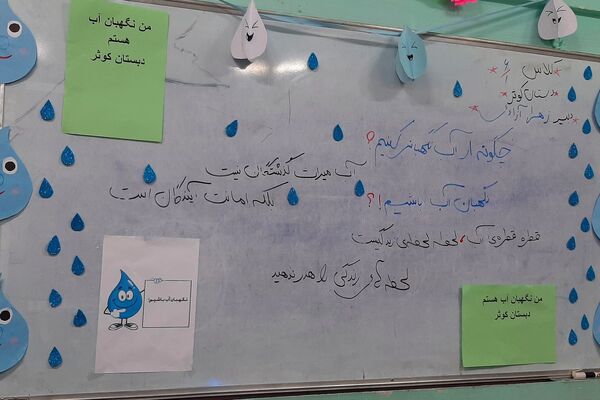 من نگهبان آب
هستم
دبستان کوثر
کلاس
دبستان کوثر
دبیر زهرا آزادی
چگونه از آب نگهبانی کنیم؟
آب میراث گذشتگان نیست
بلکه امانت آیندگان است
نگهبان آب باشیم!؟
قطره قطره‌ی آب، لحظه لحظه‌ی زندگیست
لحظه‌های زندگی را هدر ندهید
نگهبان آب باشیم!
من نگهبان آب هستم
دبستان کوثر